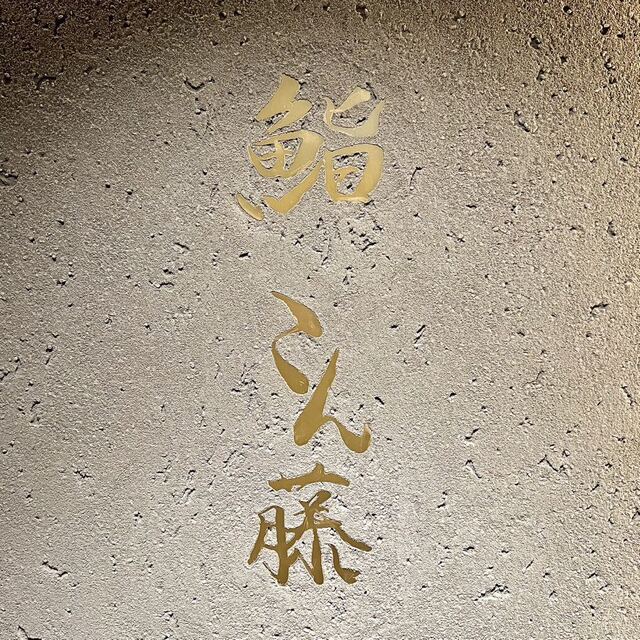 鮨 こん藤